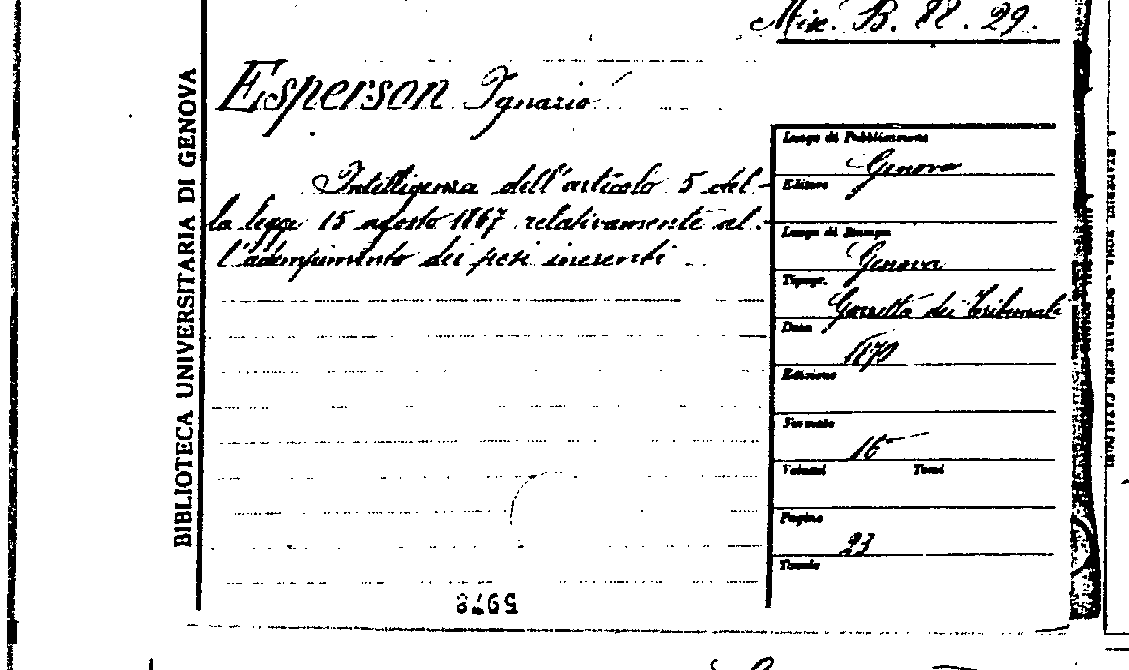 Misc. B. 88. 29.
BIBLIOTECA UNIVERSITARIA DI GENOVA
Esperson Ignazio
Intelligenza dell'articolo 5 del-
la legge 15 agosto 1867 relativamente al-
l'adempimento dei pesi inerenti
Luogo di Pubblicazione
Genova
Editore
Luogo di Stampa
Genova
Tipogr.
Gazzetta dei Tribunali
Data
1870
Edizione
Formato
16°
Volumi Tomi
Pagine
23
Tavole
5978